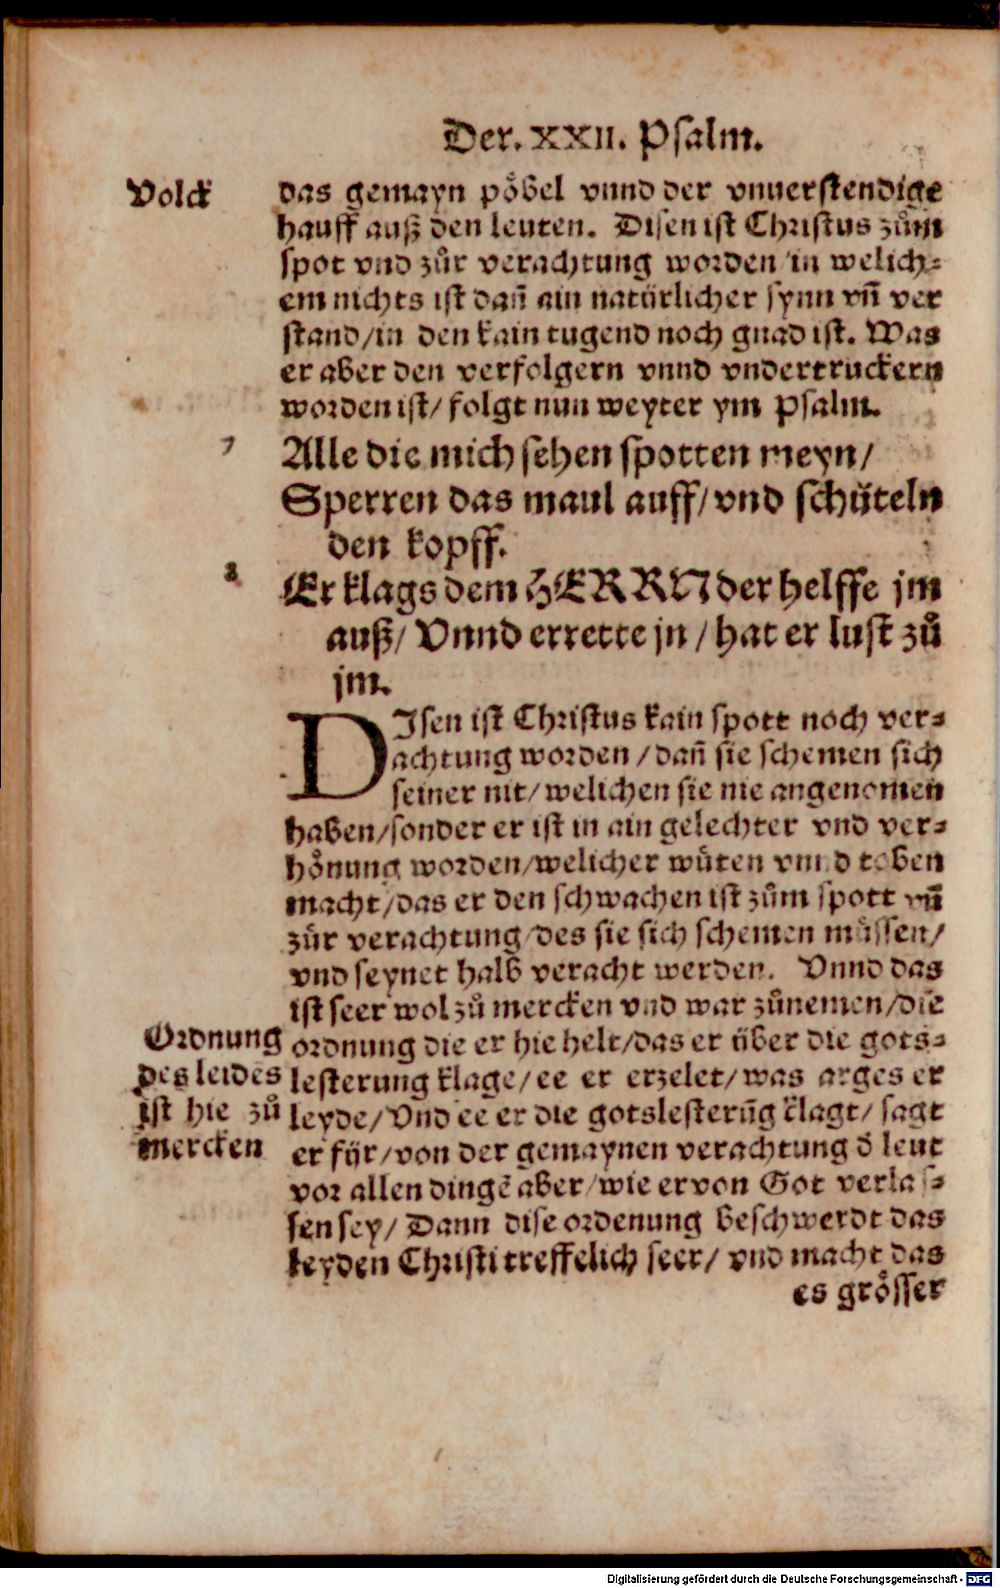 Der. XXII. Psalm.
Volck
das gemayn pöbel vnnd der vnuerstendige
hauff auß den leuten. Disen ist Christus zům
spot vnd zůr verachtung worden in welich-
em nichts ist dañ ain natürlicher synn vñ ver
stand/in den kain tugend noch gnad ist. Was
er aber den verfolgern vnnd vndertruckern
worden ist/ folgt nun weyter ym Psalm.
7
Alle die mich sehen spotten meyn/
Sperren das maul auff/vnd schüteln
den kopff.
8
Er klags dem HERRN der helffe jm
auß/ Vnnd errette jn/hat er lust zů
jm.
DIsen ist Christus kain spott noch ver-
achtung worden/dañ sie schemen sich
seiner nit/welichen sie nie angenomen
haben/sonder er ist in ain gelechter vnd ver-
hönung worden/welicher wůten vnnd toben
macht/das er den schwachen ist zům spott vñ
zůr verachtung/des sie sich schemen můssen/
vnd seynet halb veracht werden. Vnnd das
ist seer wol zů mercken vnd war zůnemen/die
ordnung die er hie helt/das er über die gots-
lesterung klage/ee er erzelet/was arges er
leyde/Vnd ee er die gotslesterũg klagt/sagt
er für/von der gemaynen verachtung ð leut
vor allen dingẽ aber/wie er von Got verlas-
sen sey/Dann dise ordenung beschwerdt das
leyden Christi treffelich seer/vnd macht das
es grösser
Ordnung
des leides
ist hie zů
mercken
Digitalisierung gefördert durch die Deutsche Forschungsgemeinschaft - DFG